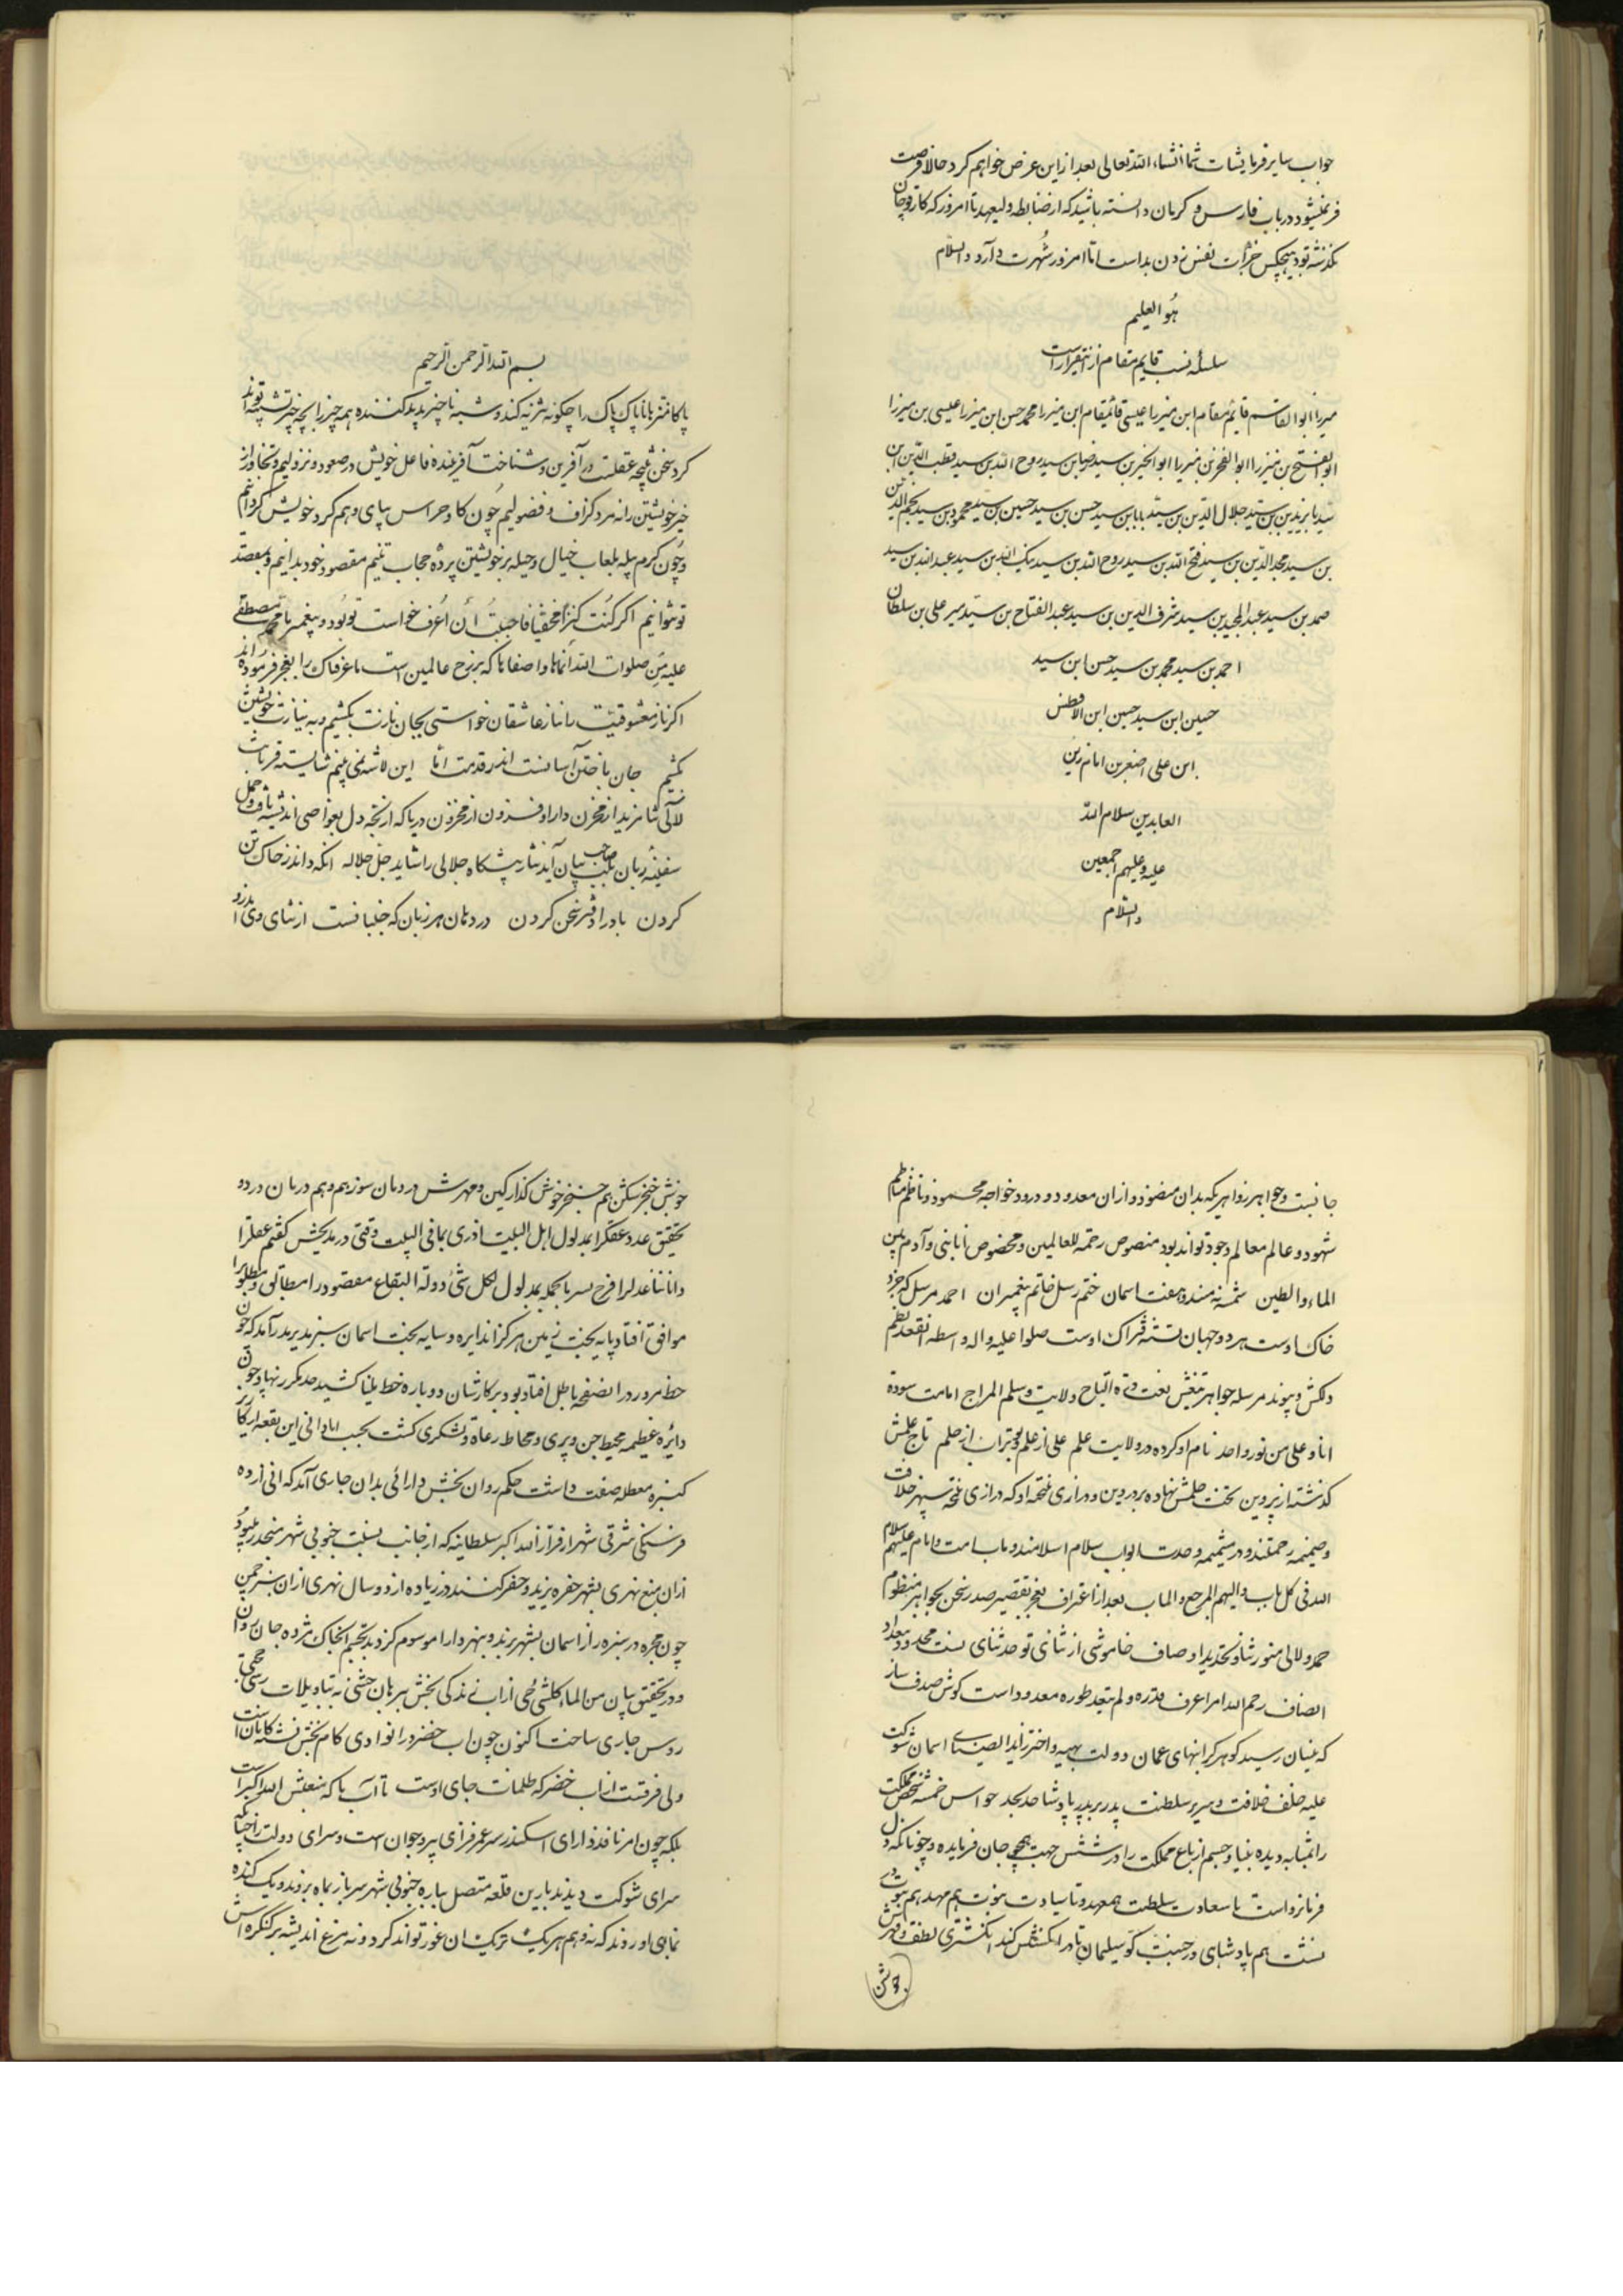 جواب سایر فرمایشات شما انشاء الله تعالی بعد از این عرض خواهم کرد حالا فرصت
در باب فارس و کرمان دانسته باشید که از ضابطه ولیعهد تا امروز که کار
نگذشته بود هیچکس جرأت نفس زدن اما امروز شهرت دارد والسلام
هو العلیم
سلسلهٔ نسب قایم مقام از اینقرار است
میرزا ابوالقاسم قایم مقام ابن میرزا عیسی قائمقام ابن میرزا محمد حسن ابن میرزا عیسی بن میرزا
ابوالفتح بن میرزا ابوالفخر بن میرزا ابوالخیر بن سید رضا بن سید روح الله بن سید قطب الدین ابن
سید بایزید بن سید جلال الدین بن سید بابا بن سید حسن بن سید حسین بن سید محمود بن سید نجم الدین
بن سید مجد الدین بن سید فتح الله بن سید روح الله بن سید نیک الله بن سید عبدالله بن سید
صمد بن سید عبدالمجید بن سید شرف الدین بن سید عبدالفتاح بن سید میر علی بن سلطان
احمد بن سید محمد بن سید حسن ابن سید
حسین ابن سید حسین ابن الافطس
ابن علی اصغر بن امام زین
العابدین سلام الله
علیه و علیهم اجمعین
والسلام
بسم الله الرحمن الرحیم
پاکا منزها ناپاک پاک را چگونه تنزیه کند و شبه ناچیز پدید کننده همه چیز را بچه چیز تشبیه تواند
کرد سخن نتیجه عقلست در آفرین و شناخت آفریننده فاعل خویش در صعود و نزولیم و تجاوز از
خیر خویشتن را نه مرد گزاف و فضولیم چون گاو خراس بپای وهم گرد خویش گردانیم
و چون کرم پیله بلعاب خیال و حیله بر خویشتن پرده حجاب تنیم مقصود خود بدانیم و بمقصد
تو نتوانیم اگر کنت کنزاً مخفیاً فاحببت أن اعرف خواست تو بود و پیغمبر ما محمد مصطفی
علیه من صلوات الله أنماها و اصفاها که برزخ عالمین است ما عرفناک را بعجز فرموده‌اند
اگر ناز معشوقیت را نیاز عاشقان خواستی بجان نازت بکشیم و به نیازت خویشتن
بکشیم جان باختن آسانست اندر قدمت اما این لاشه نمی بینم شایسته قربانت
لآلی ثنا مزید از مخزن دارا و فزون از مخزون دریا که از لجه دل بغواصی اندیشه یافت و حمل
سفینهٔ زبان بلب صاحب بیان آید نثار پیشگاه جلالی را شاید جل جلاله آنکه داند ز خاک تن
کردن باد را دفتر سخن کردن در دهان هر زبان که جنبانست از ثنای وی اندرو
جانست و جواهر زواهریکه بدان منضود و از آن معدود و درود خواجه محمود و ناظم مناظم
شهود و عالم معالم وجود تواند بود منصوص رحمة للعالمین و مخصوص انا نبی و آدم بین
الماء والطین شمسه نه مسند و هفت اسمان ختم رسل خاتم پیغمبران احمد مرسل که خرد
خاک اوست هر دو جهان بسته فتراک اوست صلوا علیه و اله واسطه العقد نظم
دلکش و پیوند مرسله جواهر نعت دره التاج ولایت و سلم المراج امامت سوده
انا و علی من نور واحد نام او کرده در ولایت علم علی از علم بوتراب از حلم تاج علمش
گذشته از پروین تخت حلمش نهاده بر در دین
و ضمیمه رحمتند و در مشیمه وحدت ابواب سلام اسلامند و باب امت و امام علیهم سلام
الله فی کل باب و الیهم المرجع و المآب بعد از اعتراف بعجز و تقصیر صدر سخن بجواهر منظوم
حمد و لالی منثور ثنا و تحدید اوصاف خاموشی از ثنای تو حد ثنای تست محدود و معدود
انصاف رحم الله امرا عرف قدره و لم یتعد طوره معدود است گوش صدف ساز
که عیان رسید گوهر گرانبهای عمان دولت بهیه و اختر زاید الضیای اسمان شوکت
علیه خلف خلافت و سریر سلطنت پدر بر پدر پادشا جد بجد حواس خمسه شخص مملکت
را بمثابه دیده بینا و جسم ارباع مملکت را در شش جهت همچو جان فزاینده و چونانکه دل
فرمانرواست با سعادت سلطنت همعهد و تا سیادت نبوت هم مهد هم نبوت در
نسبت هم پادشاهی در حسبت کو سلیمان تا در انگشتش کند انگشتری لطف و قهرش
جوشن
جوشن خنجر شکن هم خنجر جوشن گذار کین و مهرش درد و درمان سوز هم و هم درمان درد و
تحقیق عدد عقلرا بمدلول اهل البیت ادری بما فی البیت وقتی در مدیحش گفتم عقلرا
دانا تنا عدلرا فرخ سرا بالجمله بمدلول لکل شئ دولة البقاع مقصود را مطالبی و مطلوبرا
موافق افتاد پایه بخت زمین مرکز اندایره و سایه بخت اسمان سبز بدید در آمد که چون
خط مرور در انصفحه باطل افتاد بود و بر کارشان دوباره خط بلینا کشید حد مکرر نهاد چون
دائره عظیمه محیط جن و پری و محاط رعاة و لشکری گشت بحسب ابادانی این بقعه از یکا
کنیزه معطله صفت داشت حکم روان بخش دارائی بدان جاری آمد که انی از ده
فرسنگی شرقی شهر از فراز الله اکبر سلطانیه که از جانب بسمت جنوبی شهر منحدر میبود
از ان منبع نهری بشهر حفره یزید و حفر کنند در زیاده از دو سال نهری از ان سر چمن
چون مجره در سبزه زار اسمان بشهر بردند و بنهر دارا موسوم کردند بجسم انخاک مرده جان روان
و در تحقیق بیان من الماء کلشئ حی از اب زندگی بخش برهان حسی نه بتاویلات رسمی
روس جاری ساخت اکنون چون اب خضر در انوادی کام بخش تشنه کامان است
ولی فرقست از اب خضر که ظلمات جای اوست تا آب ما که منبعش الله اکبر است
بلکه چون امر نافذ دارای اسکندر سر عمر فزای پیر و جوان است و سرای دولت را چنانکه
سرای شوکت دیدند بارین قلعه متصل بباره جنوبی شهر سر باز بماه بردند و یک کنده
بماهی اوردند که نه وهم هر یک ترک ان غور تواند کرد و نه مرغ اندیشه بر کنگره اش